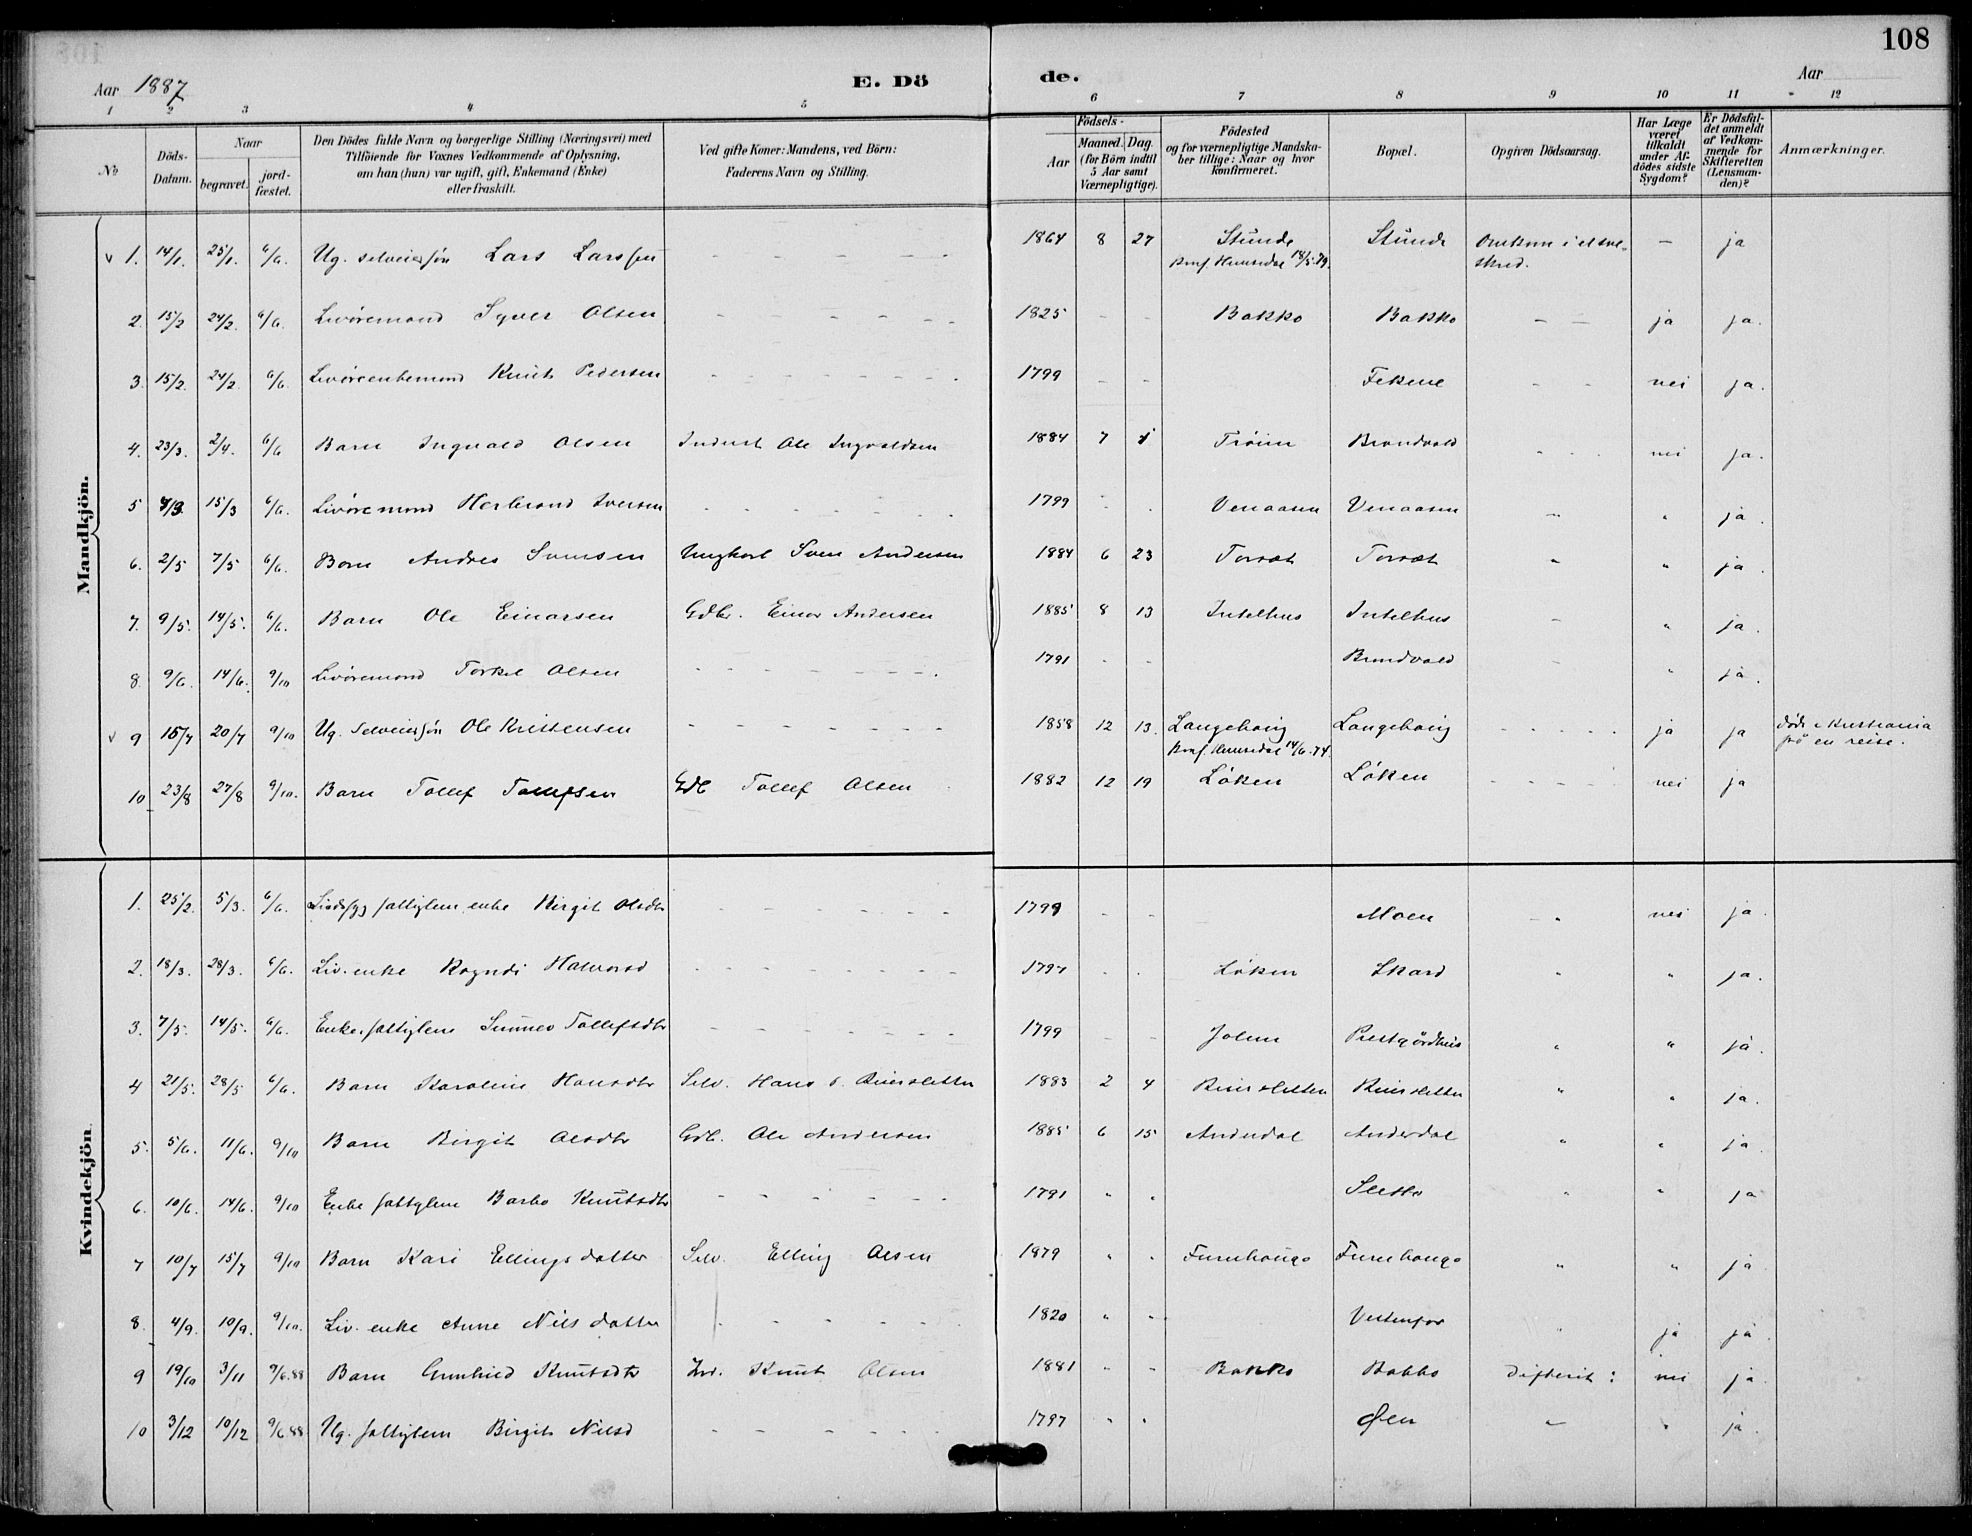 108
Aar 1887
E. Dö
de.
Aar
1 2 3 4 5 6 7 8 9 10 11 12
No
Döds-Datum.
Naar
begravet.
jord-fæstet.
Den Dödes fulde Navn og borgerlige Stilling (Næringsvei) med
Tilföiende for Voxnes Vedkommende af Oplysning,
om han (hun) var ugift, gift, Enkemand (Enke)
eller fraskilt.
Ved gifte Koner: Mandens, ved Börn:
Faderens Navn og Stilling.
Födsels-
Aar
Maaned. Dag.
(for Börn indtil
5 Aar samt
Værnepligtige).
Födested
og for værnepligtige Mandska-
ber tillige: Naar og hvor
konfirmeret.
Bopæl.
Opgiven Dödsaarsag.
Har Læge
været
tilkaldt
under Af-
dödes sidste
Sygdom?
Er Dödsfal-
det anmeldt
af Vedkom-
mende for
Skifteretten
(Lensman-
den)?
Anmærkninger.
Mandkjön.
1. 14/1. 25/1. 6/6. Ug. selveiersøn Lars Larssen 1864 8 27 Stunde Stunde Omkom i et sne- — ja
Konf. Hemsedal 18/5.79. skred.
2. 15/2 24/2. 6/6. Livøremand Syver Olsen 1825 Bakko Bakko ja ja.
3. 15/2. 24/2. 6/6. Livøreenkemand Knut Pedersen 1799 Fekene nei ja.
4. 23/3. 2/4. 6/6 Barn Ingvald Olsen Inderst Ole Ingvaldsen 1884 7 1 Trøim Brandvold nei ja.
5 7/3. 15/3 6/6. Livøremand Herbrand Iversen 1799 Venaasen Venaasen " ja.
6. 2/5 7/5 6/6. Barn Andres Svensen Ungkarl Sven Andersen 1884 6 23 Torset Torset " " ja.
7. 9/5. 14/5. 6/6. Barn Ole Einarsen Gdbr. Einar Andersen 1885 8 13 Intelhus Intelhus " ja.
8. 9/6. 14/6. 9/10 Livøremand Torkel Olsen 1791 Brandvold " ja.
9 15/7 20/7 9/10 Ug. Selveiersøn Ole Kristensen 1858 12 13. Langehaug Langehaug ja ja døde i Kristiania
Konf. Hemsedal 14/6.74. på en reise.
10 23/8 27/8 9/10. Barn Tollef Tollefsen Gdb Tollef Olsen 1882 12 19 Løken Løken nei ja
Kvindekjön
1. 25/2. 5/3. 6/6. fattiglem enke Birgit Olsdtr 1799 Moen " nei ja.
2. 18/3. 28/3. 6/6. Liv. enke Ragndi Halvorsd 1797 Løken Skard " " ja.
3. 7/5. 14/5. 6/6. Enke, fattiglem Sunnev Tollefsdtr 1799 Jolen Prestgårdhus " " ja.
4 21/5. 28/5 6/6. Barn Karoline Hansdtr Selv. Hans O. 1883 2 4 " " ja.
5. 5/6. 11/6. 9/10 Barn Birgit Olsdtr Gdb. Ole Andersen 1885 6 15 Anderdal Anderdal " " ja
6. 10/6. 14/6. 9/10 Enke fattiglem Barbo Knutsdtr 1791 " " Sletto " " ja
7 10/7 15/7 9/10 Barn Kari Ellingsdatter Selv. Elling Olsen 1879 " " Furuhaugo Furuhaugo " " ja
8. 4/9. 10/9. 9/10. Liv. enke Anne Nilsdatter 1820 " " " ja ja
9 19/10 3/11 9/6.88 Barn Gunhild Knutsdtr Ind. Knut Olsen 1881 " " Bakko Bakko Difterit: nei ja
10 3/12 10/12 9/6 88 Ug. fattiglem Birgit Nilsd 1797 " " Øen " " ja